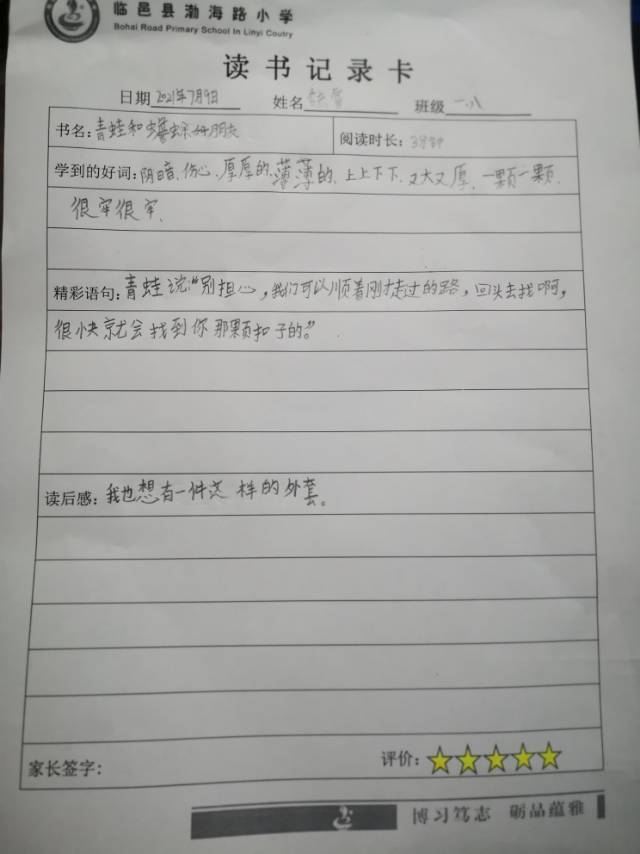 临邑县渤海路小学
Bohai Road Primary School In Linyi Coutry
读书记录卡
日期2021年7月9日 姓名 班级一.八
书名:青蛙和蟾蜍好朋友 阅读时长:
学到的好词:阴暗、伤心、厚厚的、薄薄的、上上下下、又大又厚、一颗一颗、
很牢很牢、
精彩语句:青蛙说“别担心,我们可以顺着刚才走过的路,回头去找啊,
很快就会找到你那颗扣子的。”
读后感:我也想有一件这样的外套。
家长签字: 评价:
博习笃志 砺品蕴雅